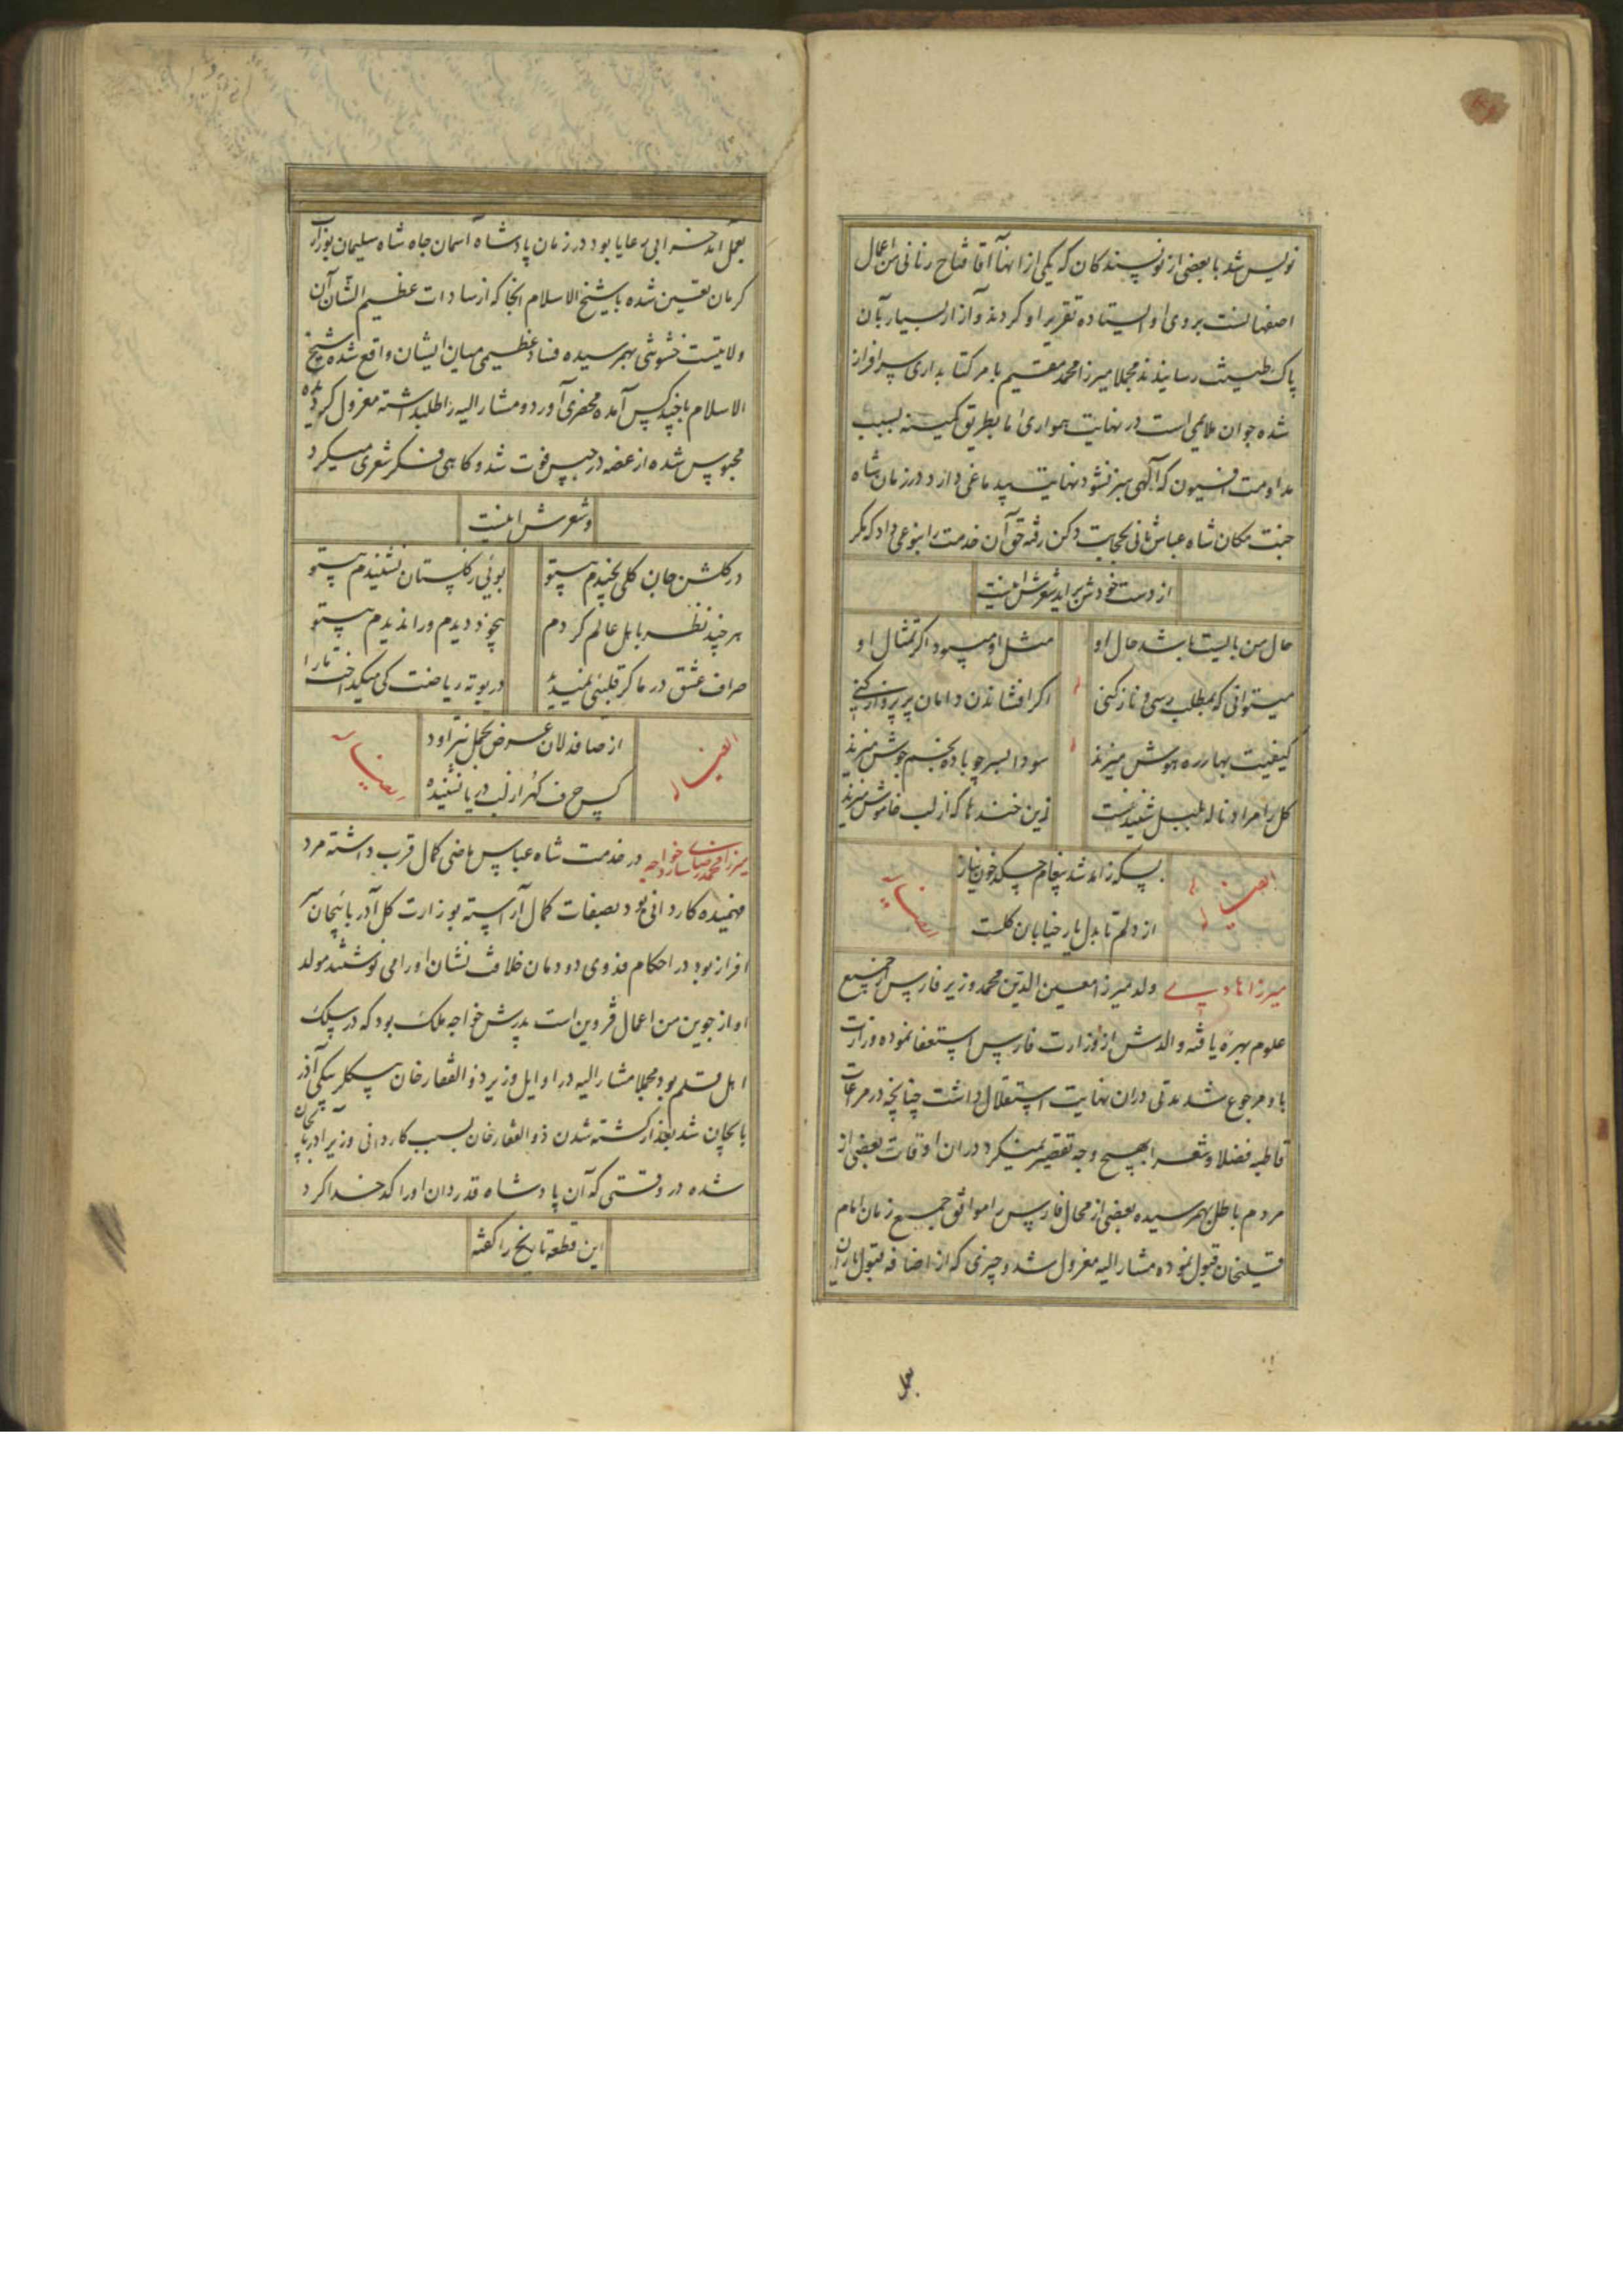 نویس شد با بعضی از نویسندکان که یکی از انها آقا فتاح رنانی من اعمال
اصفهانست بروی او ایستاده تقریر او کردند و آزار بسیار بآن
پاک طینت رسانیدند مجملا میرزا محمد مقیم بامر کتابداری سرافراز
شده جوان ملایمی است در نهایت همواری اما بطریق کمینه بسبب
مداومت افیون که الهی سبز نشود نهایت بیدماغی دارد در زمان شاه
جنت مکان شاه عباس ثانی بحجابت دکن رفته حق آن خدمت را بنوعی داد که مکر
از دست خودش براید شعرش اینست
حال من بایست تا باشد حال او
مثل او میبود اکر تمثال او
میتوانی که بمطلب رسی و ناز کنی
اکر افشاندن دامان پر پرواز کنی
کیفیت بهار ره هوش میزند
سودا بسر چو باده بخم جوش میزند
کل را مراد ناله بلبل شنیدنست
زین خنده ها که از لب خاموش میزند
ایضا له
بسکه زامد شد پیغام چسکد خون نیاز
از دلم تا بدل یار خیابان کلست
میرزا هادی ولد میرزا معین الدین محمد وزیر فارس از جمیع
علوم بهره یافته والدش از وزارت فارس استعفا نموده وزارت
باو مرجوع شد مدتی دران نهایت استقلال داشت چنانچه در مراعات
قاطبه فضلا و شعرا بهیچ وجه تقصیر نمیکرد دران اوقات بعضی از
مردم باطل بهم رسیده بعضی از محال فارس را موافق جمیع زمان امام
قلیخان قبول نموده مشار الیه معزول شد و چیزی که از اضافه قبول
بعمل
بعمل امد خرابی رعایا بود در زمان پادشاه آسمان جاه شاه سلیمان بوزارت
کرمان تعیین شده با شیخ الاسلام انجا که از سادات عظیم الشان آن
ولایتست خشونتی بهم رسیده فساد عظیمی میان ایشان واقع شده شیخ
الاسلام با چند کس آمده محضری آورد و مشار الیه را طلب داشته معزول کردیده
محبوس شده از غصه در حبس فوت شد و کاهی فکر شعری میکرد
و شعرش اینست
در کلشن جان کلی نچیدم بیتو
بوئی ز کلستان نشنیدم بیتو
هر چند نظر باهل عالم کردم
بیخود دیدم ورا ندیدم بیتو
صراف عشق در ما کر قلبئی نمیدید
در بوته ریاضت کی میکداخت ما را
ایضا له
از صافدلان عرض تجمل نتراود
کس حرف کهر از لب دریا نشنیده
میرزا محمد رضای ساروخواجه در خدمت شاه عباس ماضی کمال قرب داشته مرد
فهمیده کاردانی بود بصفات کمال آراسته بوزارت کل آذربایجان سر
افراز بود در احکام فدوی دودمان خلافت نشان او را می نوشتند مولد
او از جوین من اعمال قزوین است پدرش خواجه ملک بود که در سلک
اهل قلم بود مجملا مشار الیه در اوایل وزیر ذو الفقار خان بیکلربیکی آذر
بایجان شد بعد از کشته شدن ذو الفقار خان بسبب کاردانی وزیر اذربایجان
شده در وقتی که آن پادشاه قدردان او را کدخدا کرد
این قطعه تاریخ را کفته